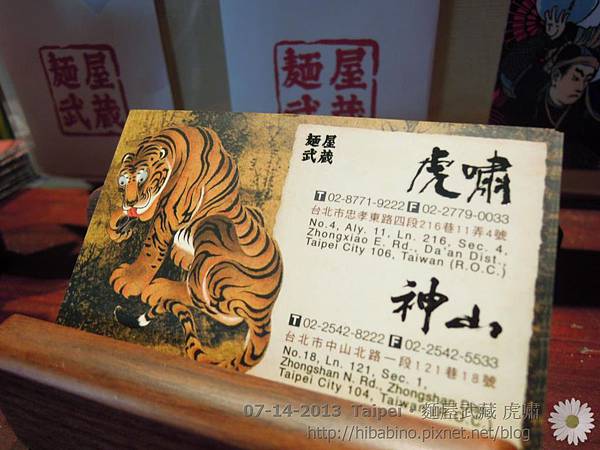 麺屋
武蔵
麺屋
武蔵
麺屋
武蔵
虎嘯
T 02-8771-9222 F 02-2779-0033
台北市忠孝東路四段216巷11弄4號
No.4, Aly. 11, Ln. 216, Sec. 4,
Zhongxiao E. Rd., Da'an Dist.,
Taipei City 106, Taiwan (R.O.C.)
神山
T 02-2542-8222 F 02-2542-5533
台北市中山北路一段121巷18號
No.18, Ln. 121, Sec. 1,
Zhongshan N. Rd., Zhongshan Dist.,
Taipei City 104, Taiwan (R.O.C.)
07-14-2013 Taipei・麵屋武藏 虎嘯
http://hibabino.pixnet.net/blog